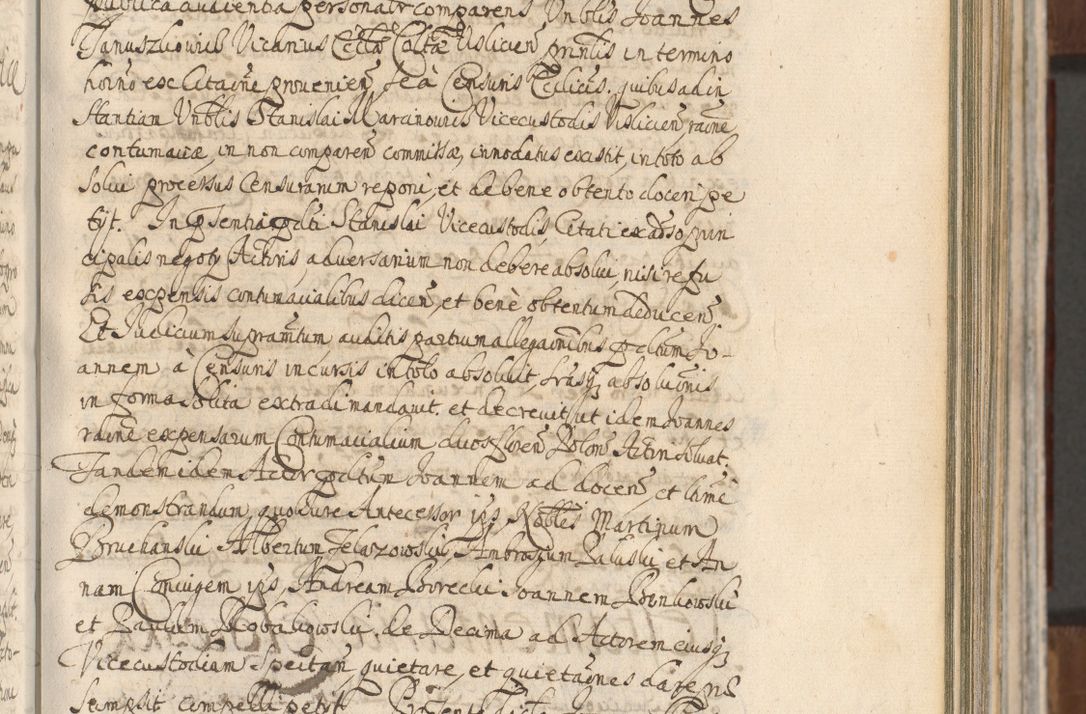 publica audientia personalr comparens Vnblis Joannes
Januszkowicz Vicarius Ecclae Colltae Vislicien prntis in termino
horno ex citaone provenien, se à Censuris Ecclicis, quibus ad in
stantiam Vnblis Stanislai Maranowic Vicecustodis Vislicien raone
contumaciæ, in non comparen commissæ, innodatus exstitit, in toto ab
solui processus Censurarum reponi, et de bene obtento doceri pe
tijt. In psentia pdti Stanislai Vicecustodis Citati ex adso prin
cipalis negoty Actoris, adversarium non debere absolui, nisi refu
sis expensis contumacialibus dicen, et benè obtentum adducen
Et Judicium supramtum, auditis partium allegaonibus pdtum Jo-
annem à Censuris incursis in toto absoluit, lrasq absoluonis
in forma solita extradi mandavit. et decrevit, ut idem Joannes
raone expensarum Contumacialium duos floren Polon Actori soluat.
Tandem idem Actor pdtum Joannem ad docen, et lime
demonstrandum, quo jure Antecessor ips Nobles Martinum
Bruchanski Albertum Zelazowski, Ambrosium Paluski et An
nam Coniugem ips, Andream Borecki Joannem Bonkowski
et Paulum Kobakowski, de Decima ad Actorem eiusq
Vicecustodiam Spectan, quietare, et quietaones dare
sempsit compelli petijt